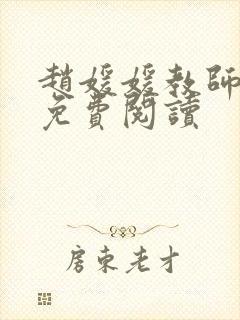 趙媛媛教師
免費閱讀
房東老才